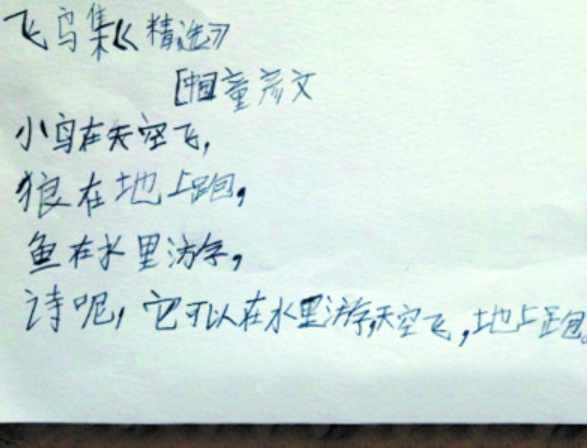 飞鸟集《精选》
[中国]童彦文
小鸟在天空飞，
狼在地上跑，
鱼在水里游，
诗呢，它可以在水里游，天空飞，地上跑。